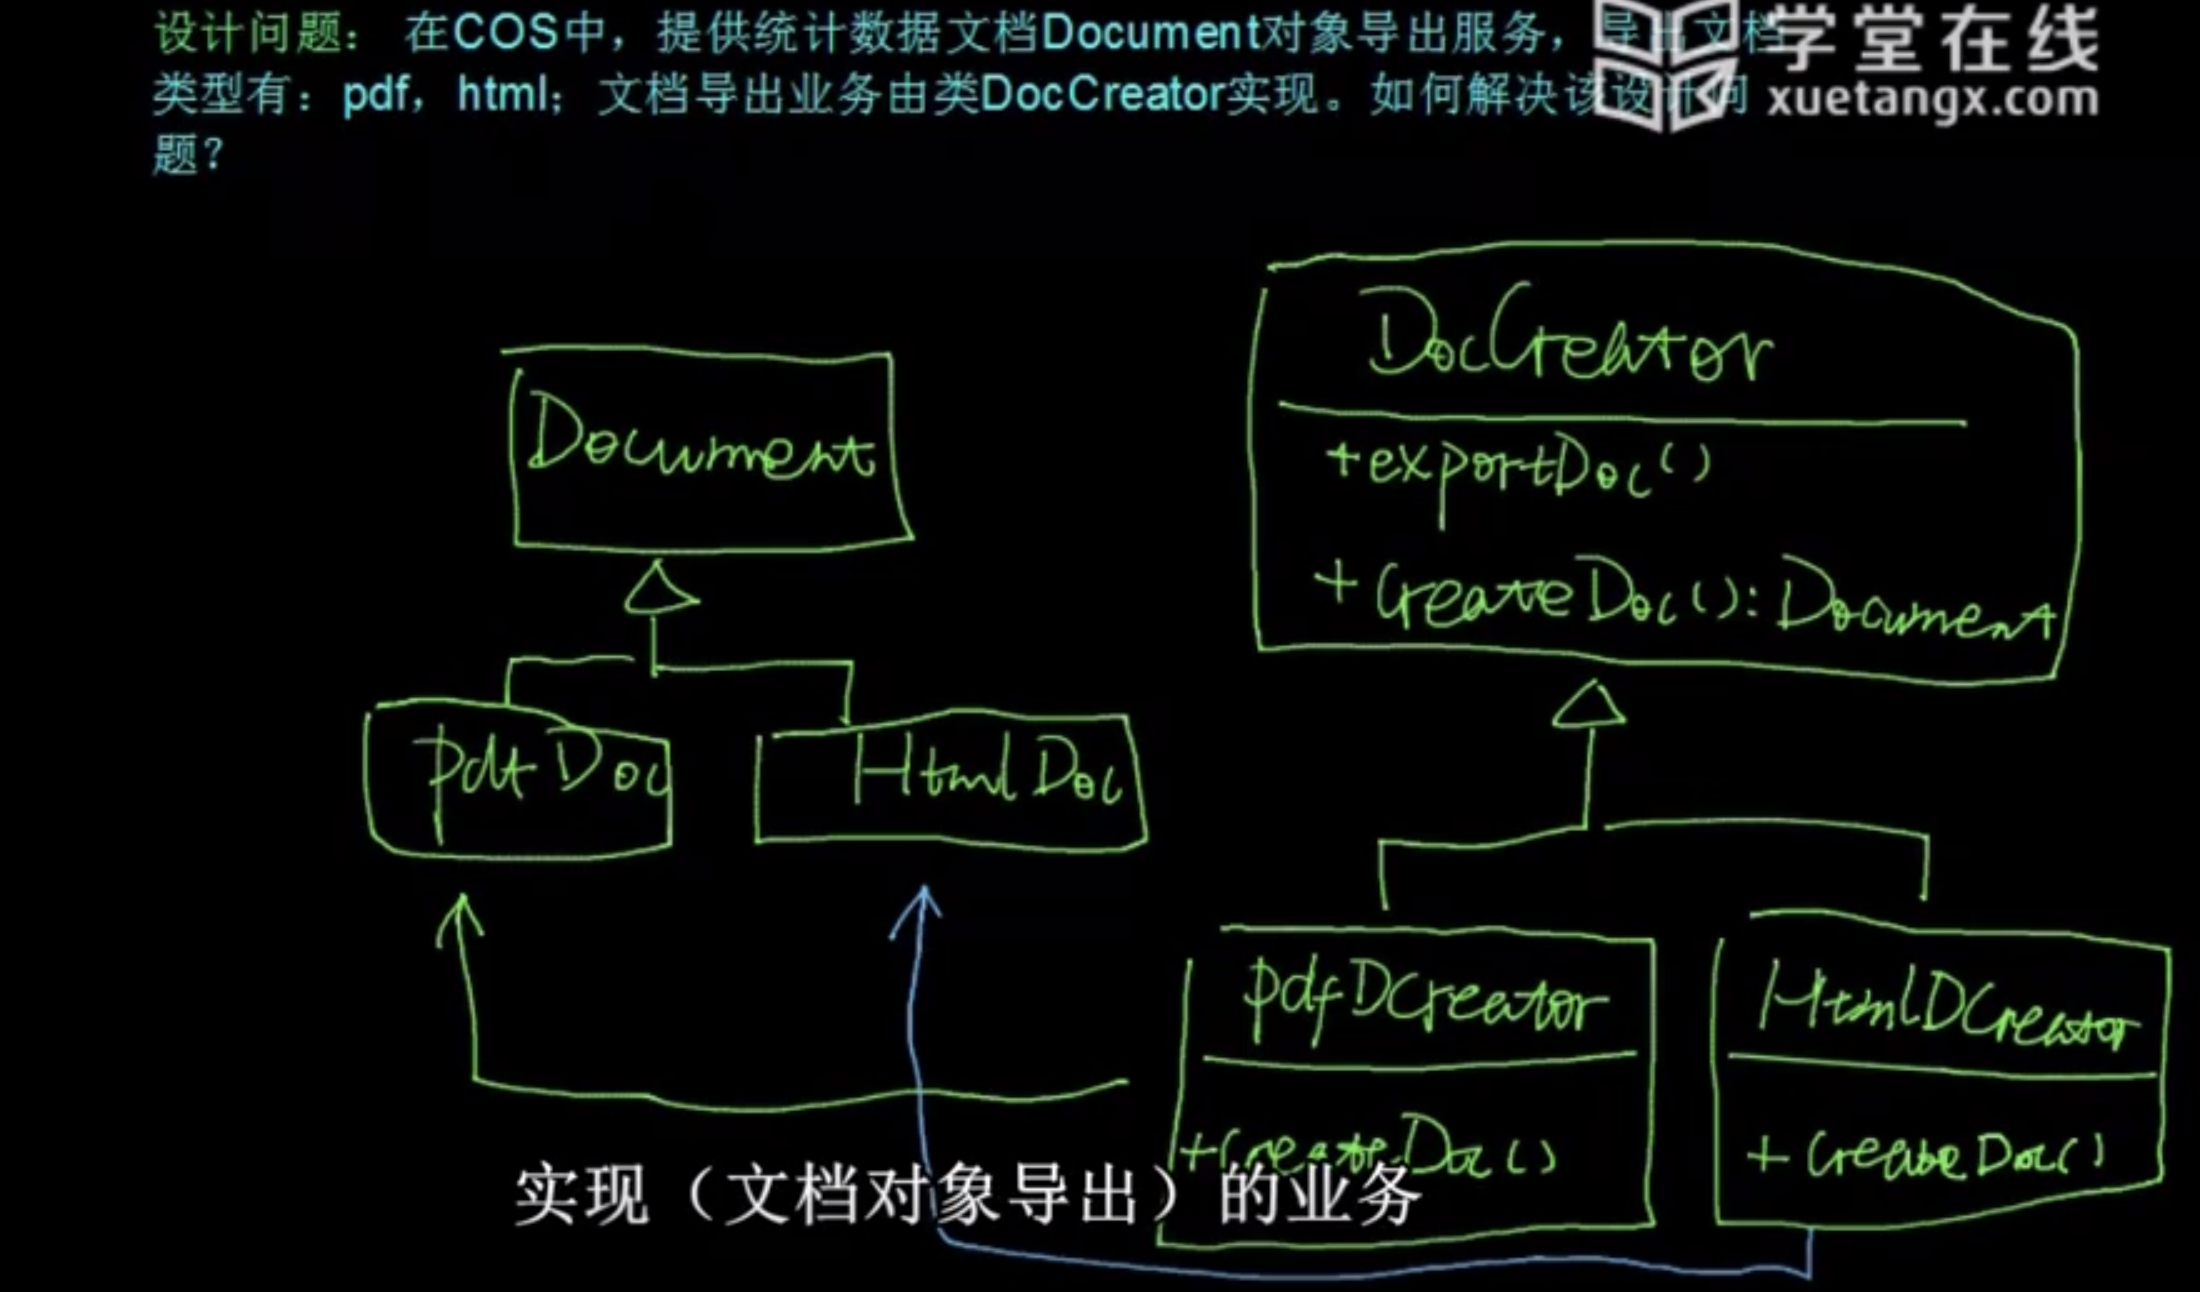 设计问题： 在COS中，提供统计数据文档Document对象导出服务，导出文档
类型有：pdf，html；文档导出业务由类DocCreator实现。如何解决该设计问
题？
学堂在线
xuetangx.com
Document
pdf Doc
Html Doc
DocCreator
+exportDoc()
+CreateDoc():Document
pdfDCreator
+CreateDoc()
HtmlDCreator
+CreateDoc()
实现（文档对象导出）的业务